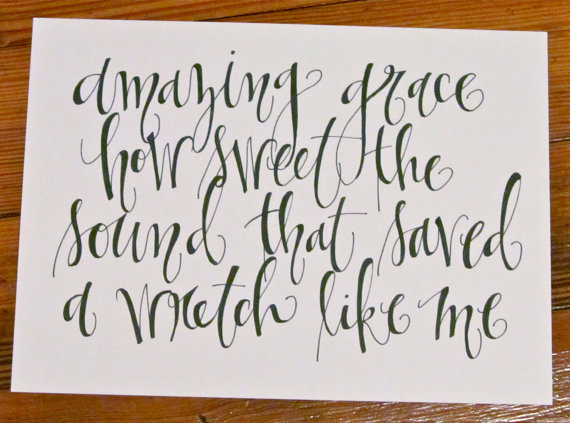 amazing grace
how sweet the
sound that saved
a wretch like me